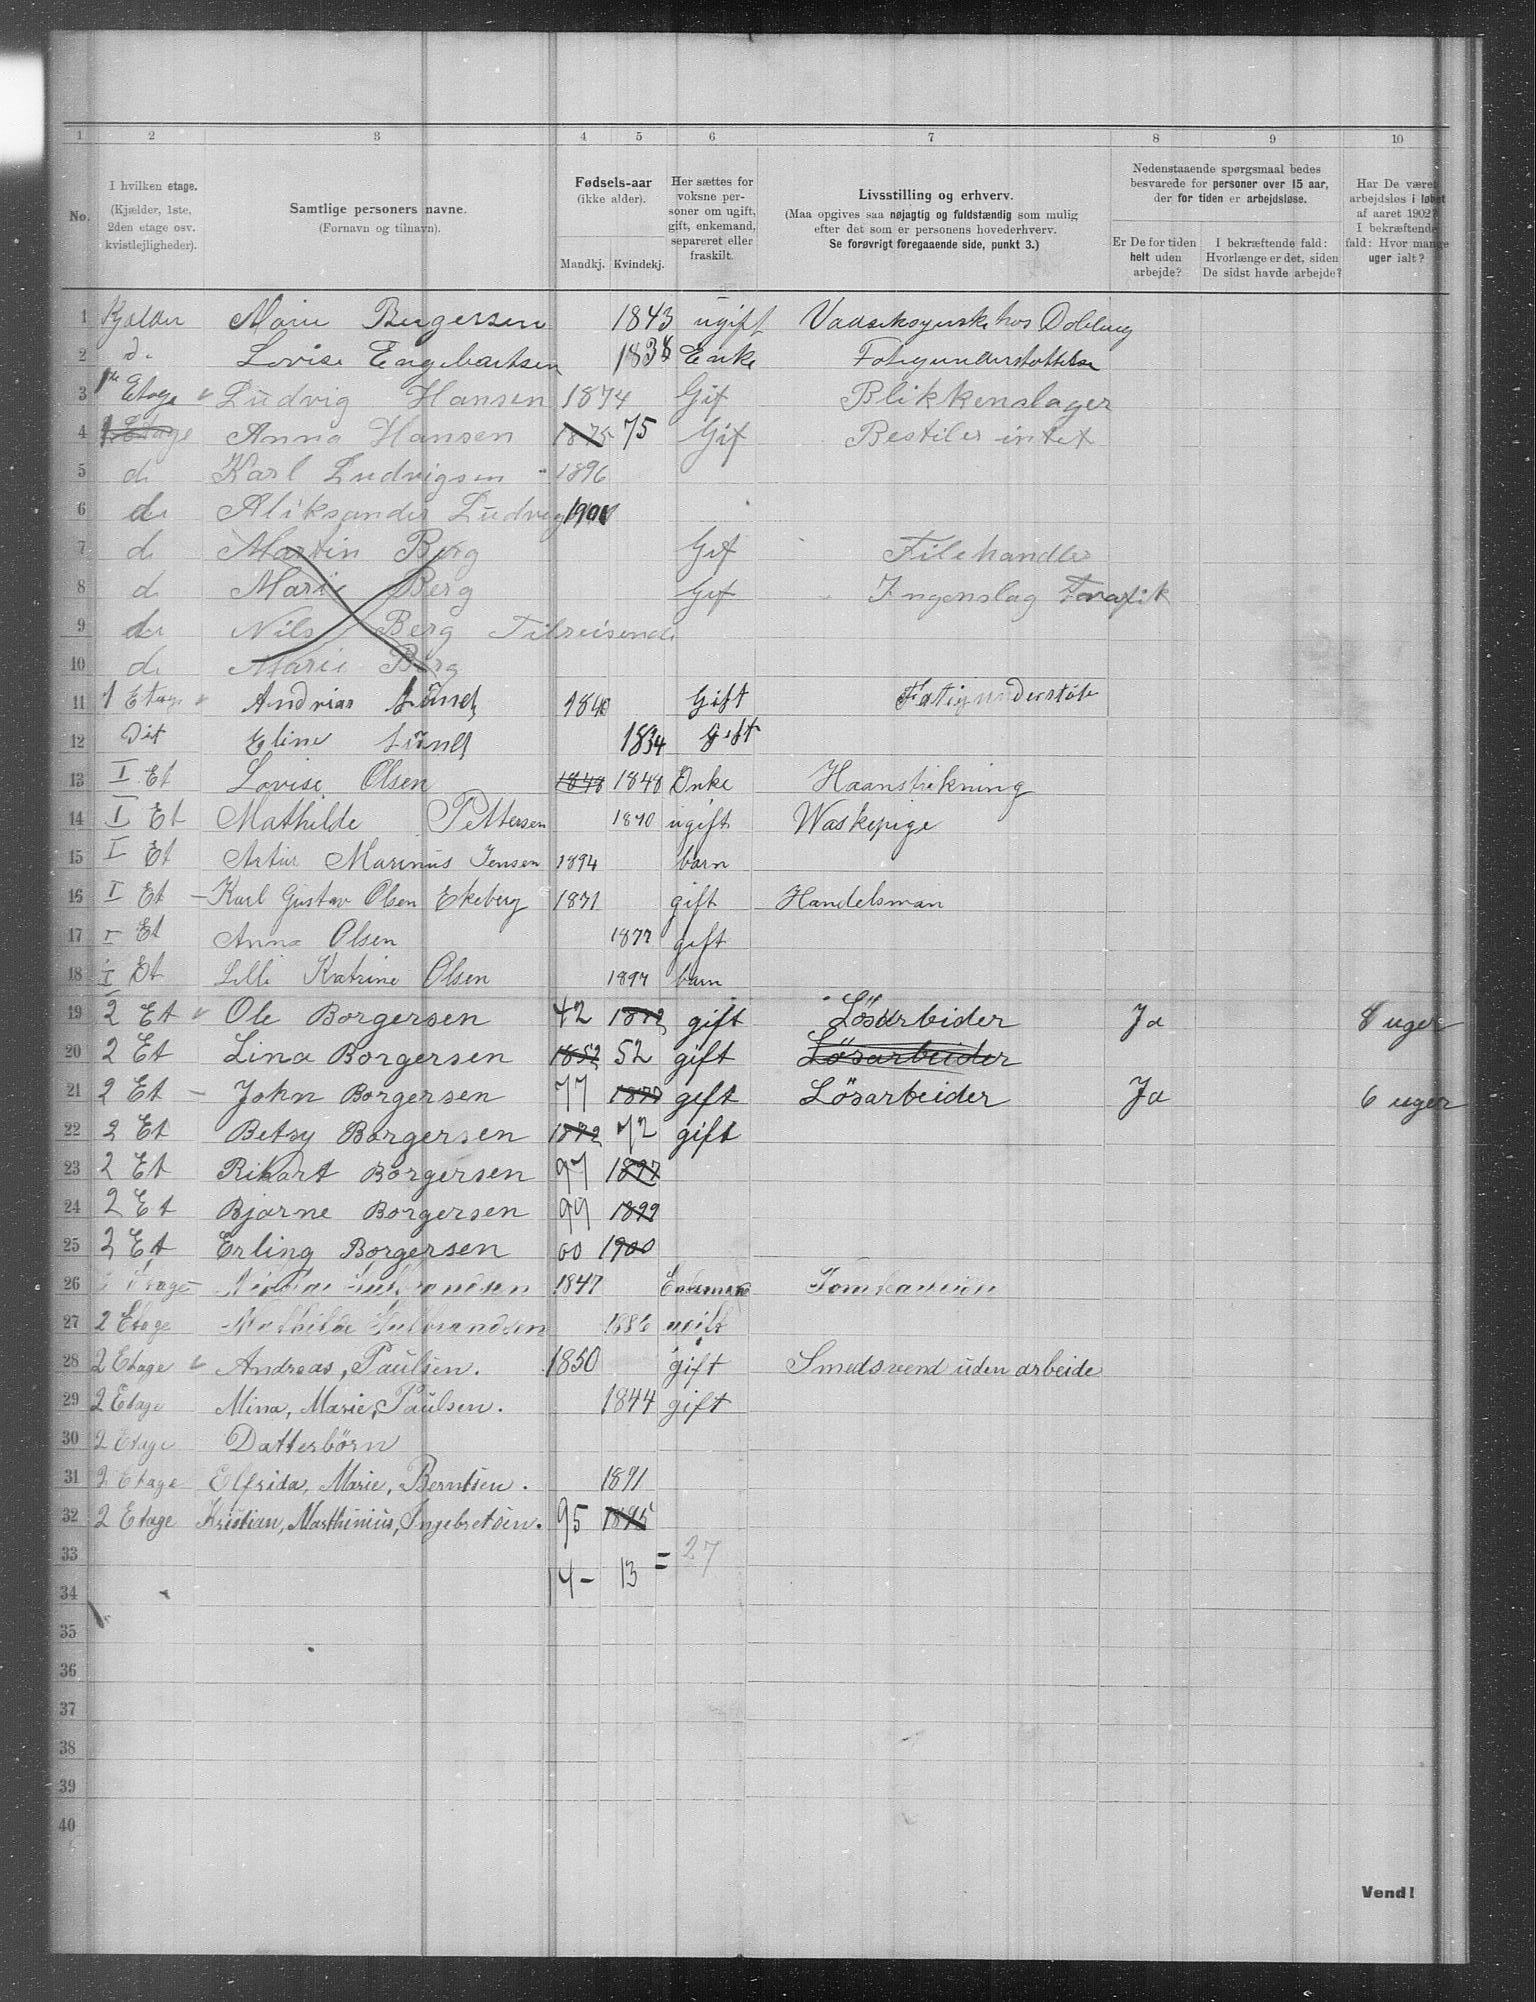 1 2 3 4 5 6 7 8 9 10
No.
I hvilken etage.
(Kjælder, 1ste,
2den etage osv.
kvistlejligheder).
Samtlige personers navne.
(Fornavn og tilnavn).
Fødsels-aar
(ikke alder).
Mandkj. Kvindekj.
Her sættes for
voksne per-
soner om ugift,
gift, enkemand,
separeret eller
fraskilt.
Livsstilling og erhverv.
(Maa opgives saa nøjagtig og fuldstændig som mulig
efter det som er personens hovederhverv.
Se forøvrigt foregaaende side, punkt 3.)
Nedenstaaende spørgsmaal bedes
besvarede for personer over 15 aar,
der for tiden er arbejdsløse.
Er De for tiden
helt uden
arbejde?
I bekræftende fald:
Hvorlænge er det, siden
De sidst havde arbejde?
Har De været
arbejdsløs i løbet
af aaret 1902?
I bekræftende
fald: Hvor mange
uger ialt?
1 Kjælder Marie Bergersen 1843 ugift hos
2 d. Lovise Engebretsen 1838 Enke
3 1ste Etage Ludvig Hansen 1874 Gif Blikkenslager
4 1 Etage Anna Hansen 1875 75 Gif Bestiler intet
5 d. Karl Ludvigsen 1896
6 d. Aliksander 1901
7 d. Martin Berg Gif Filehandler
8 d. Marie Berg Gif Ingenslag
9 d. Nils Berg Tilreisende
10 d. Marie Berg
11 1 Etage Andrias Lund 1840 Gift
12 Dit Eline Lund 1834 gift
13 I Et Lovise Olsen 1848 1848 Enke Haanstrikning
14 I Et Mathilde Pettersen 1870 ugift Waskepige
15 I Et Artur Marinus Jensen 1894 barn
16 I Et Karl Gustav Olsen Ekeberg 1871 gift Handelsman
17 I Et Anna Olsen 1877 gift
18 I Et Lilli Katrine Olsen 1897 barn
19 2 Et Ole Borgersen 42 gift Lösarbider Ja 8 uger
20 2 Et Lina Borgersen 1852 52 gift Lösarbeider
21 2 Et John Borgersen 77 1877 gift Lösarbeider Ja 6 uger
22 2 Et Betsy Borgersen 1872 72 gift
23 2 Et Rikart Borgersen 97 1897
24 2 Et Bjarne Borgersen 99 1899
25 2 Et Erling Borgersen 00 1900
26 Etage 1847 Enkeman
27 2 Etage Mathilde Gulbrandsen 1886 ugift
28 2 Etage Andreas, Paulsen. 1850 gift Smedsvend uden arbeide
29 2 Etage Mina, Marie, Paulsen. 1844 gift
30 2 Etage Datterbörn
31 2 Etage Elfrida, Marie, Berntsen. 1891
32 2 Etage Kristian, Marthinius, Ingebretsen. 95 1895
33 = 27
34 14 - 13
35
36
37
38
39
40
Vend!